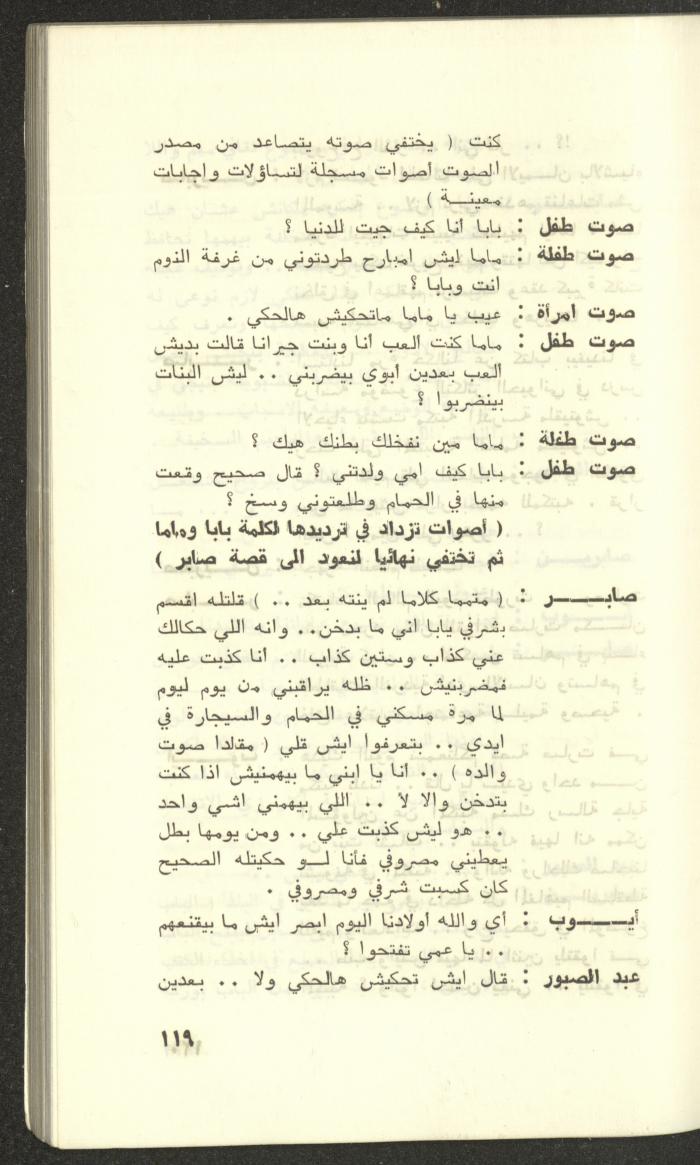 كنت ( يختفي صوته يتصاعد من مصدر
الصوت أصوات مسجلة لتساؤلات واجابات
معينــة )
صوت طفل : بابا أنا كيف جيت للدنيا ؟
صوت طفلة : ماما ليش امبارح طردتوني من غرفة النوم
انت وبابا ؟
صوت امرأة : عيب يا ماما ماتحكيش هالحكي .
صوت طفل : ماما كنت العب أنا وبنت جيرانا قالت بديش
العب بعدين أبوي بيضربني . . ليش البنات
بينضربوا ؟
صوت طفلة : ماما مين نفخلك بطنك هيك ؟
صوت طفل : بابا كيف امي ولدتني ؟ قال صحيح وقعت
منها في الحمام وطلعتوني وسخ ؟
( أصوات تزداد في ترديدها لكلمة بابا وماما
ثم تختفي نهائيا لنعود الى قصة صابر )
صابــــــر : ( متمما كلاما لم ينته بعد . . ) قلتله اقسم
بشرفي يابا اني ما بدخن . . وانه اللي حكالك
عني كذاب وستين كذاب . . أنا كذبت عليه
فمضربنيش . . ظله يراقبني من يوم ليوم
لما مرة مسكني في الحمام والسيجارة في
ايدي . . بتعرفوا ايش قلي ( مقلدا صوت
والده ) . . أنا يا ابني ما بيهمنيش اذا كنت
بتدخن والا لأ . . اللي بيهمني اشي واحد
. . هو ليش كذبت علي . . ومن يومها بطل
يعطيني مصروفي فأنا لــو حكيتله الصحيح
كان كسبت شرفي ومصروفي .
أيـــــوب : أي والله أولادنا اليوم ابصر ايش ما بيقنعهم
. . يا عمي تفتحوا ؟
عبد الصبور : قال ايش تحكيش هالحكي ولا . . بعدين
١١٩